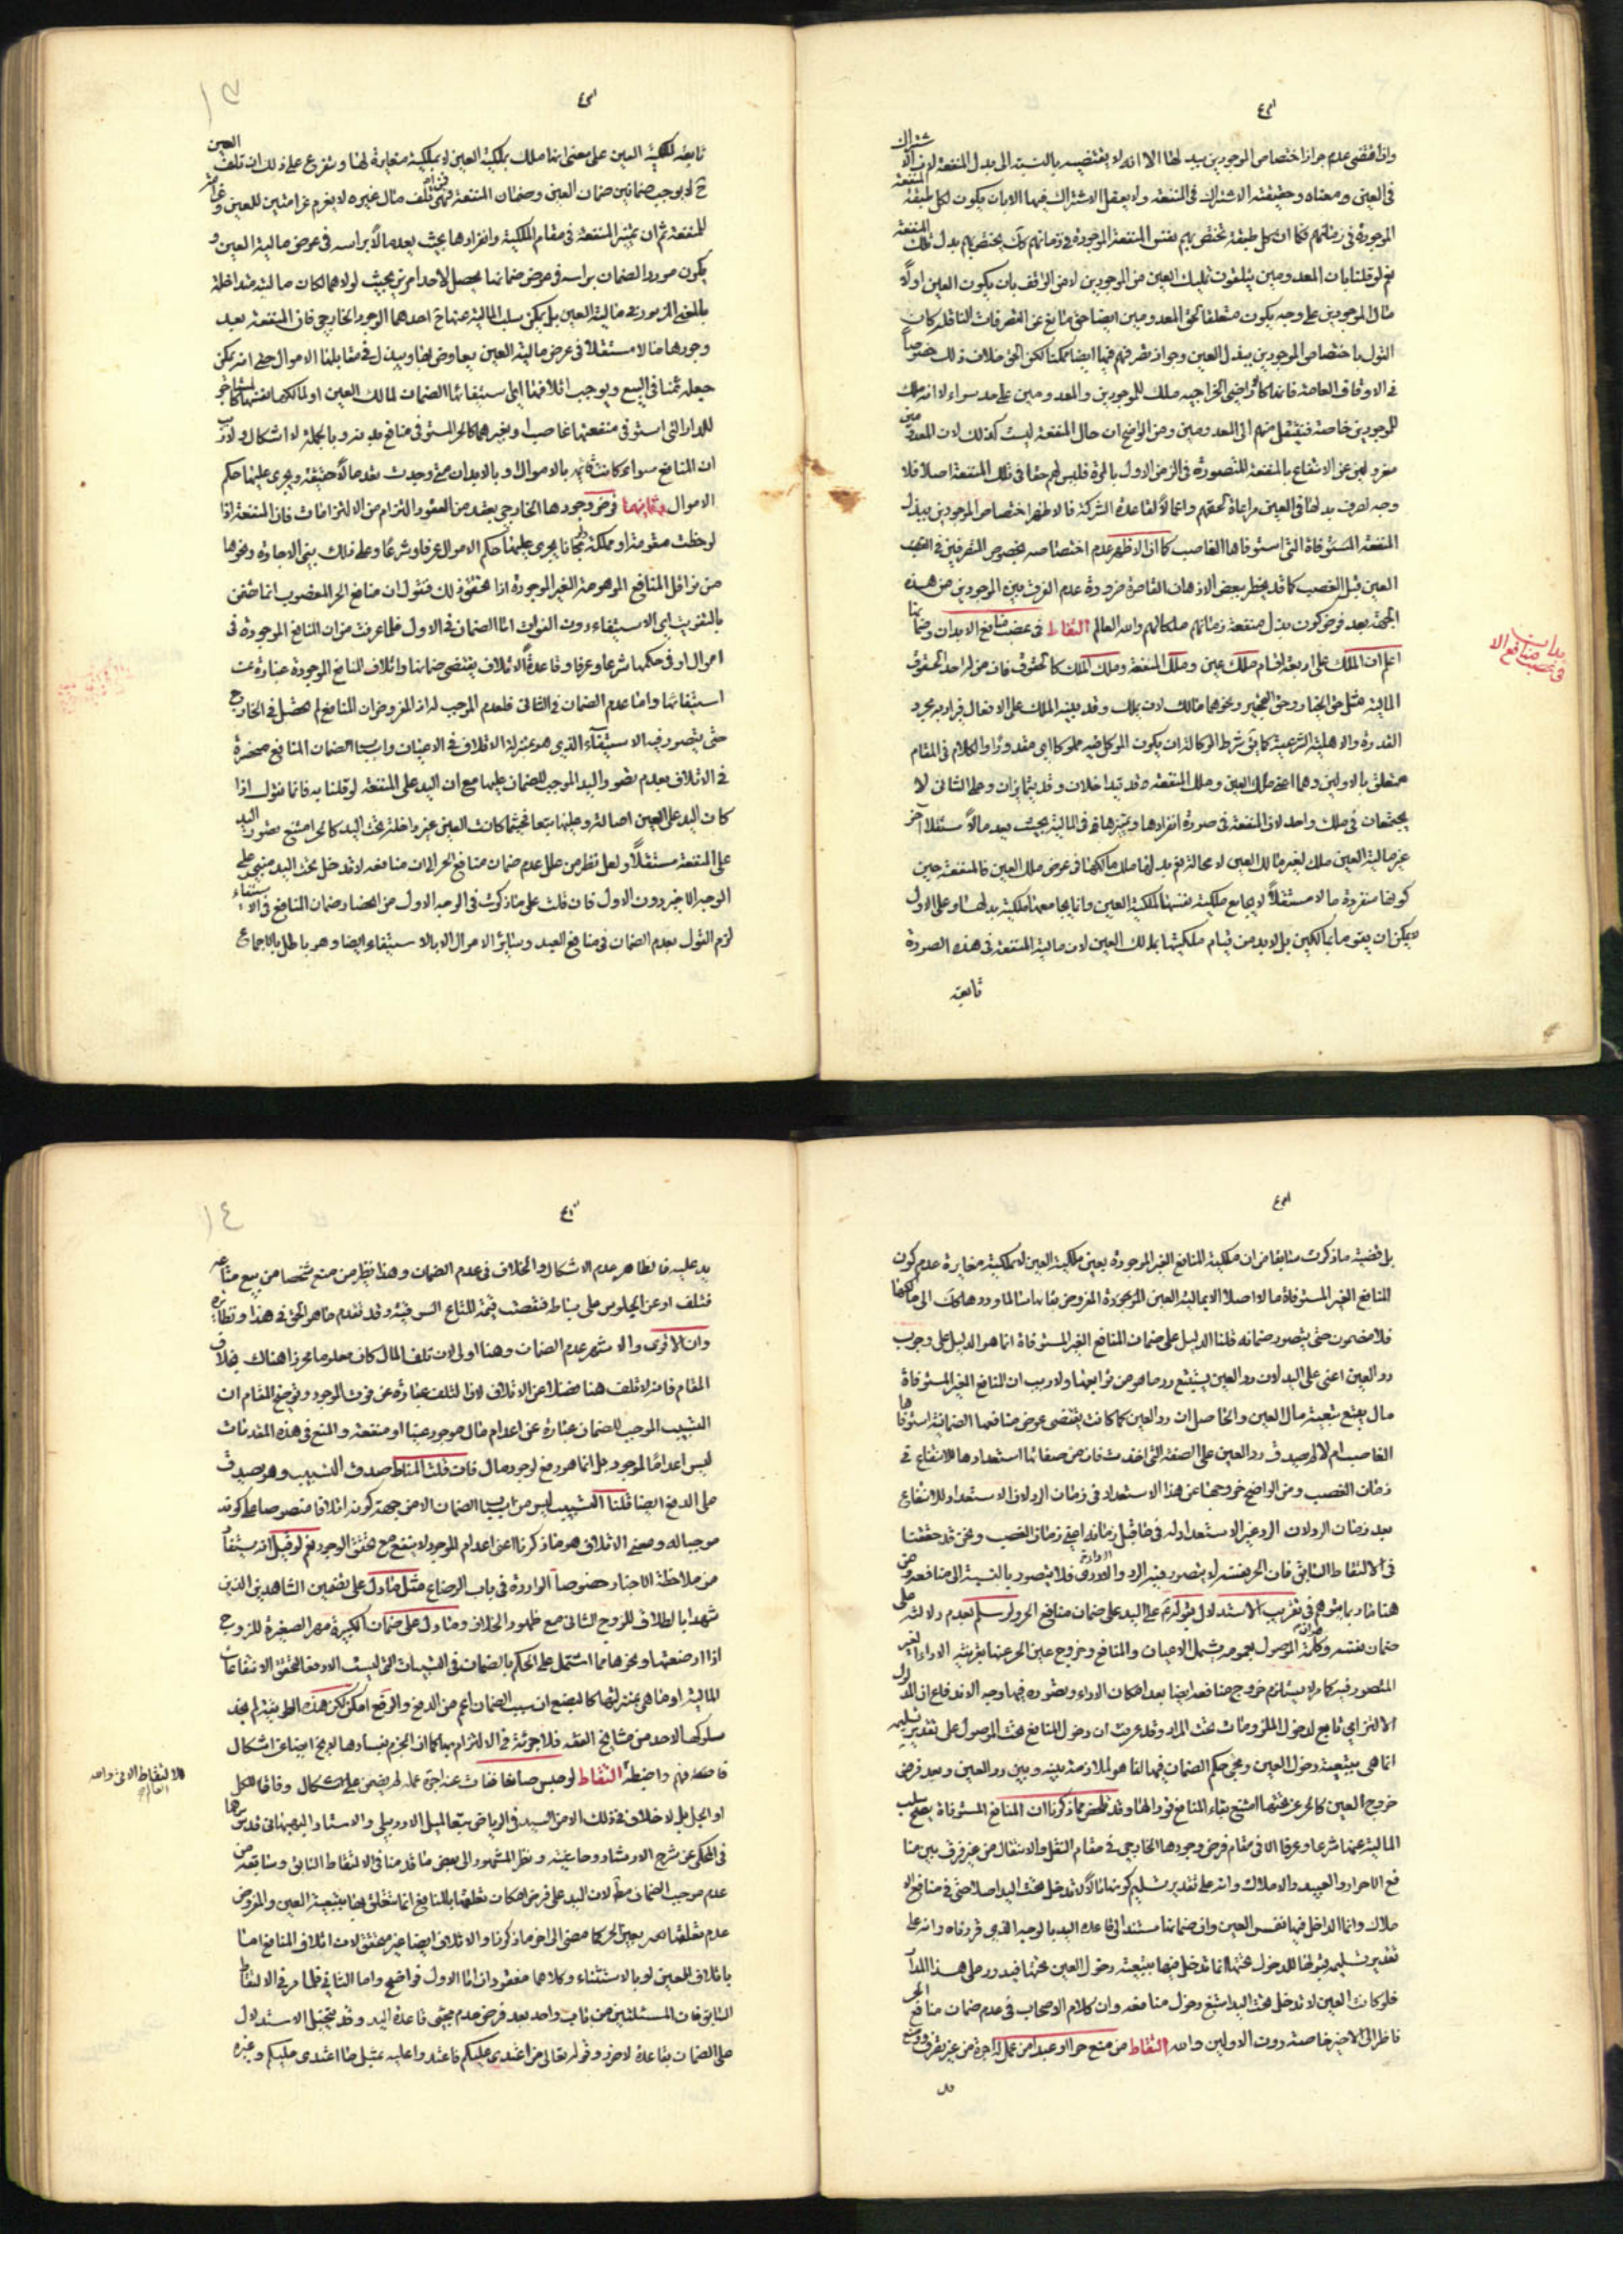 واذا اقتضى عدم جواز اختصاص الموجودين ببدلها الا انه لا يقتضيه بالنسبة الى بدل المنفعة لان الاشتراك
في العين ومعناه وحقيقته الاشتراك في المنفعة ولا يعقل الاشتراك فيها الا بان يكون لكل طبقة المنفعة
الموجودة في زمانهم فكما ان كل طبقة تختص بهم نفس المنفعة الموجودة في زمانهم كك يختص بهم بدل تلك المنفعة
نعم لو قلنا بان المعدومين يتلقون تمليك العين من الموجودين لا من الواقف بان يكون العين اولا
مال الموجودين على وجه يكون متعلقا لحق المعدومين ايضا حتى مانع عن التصرفات الناقلة كان
القول باختصاص الموجودين ببدل العين وجواز تصرفهم فيها ايضا ممكنا لكن الحق خلاف ذلك خصوصا
في الاوقاف العامة فانها كالاراضي الخراجية ملك للموجودين والمعدومين على حد سواء لا انه ملك
للموجودين خاصة فينتقل منهم الى المعدومين ومن الواضح ان حال المنفعة ليست كذلك لان المعدومين
معزولين عن الانتفاع بالمنفعة المتصورة في الزمن الاول بالمرة فليس لهم حق في تلك المنفعة اصلا فلا
وجه لصرف بدلها في العين مراعاة لحقهم واعمالا لقاعدة الشركة فالاظهر اختصاص الموجودين ببدل
المنفعة المستوفاة التي استوفاها الغاصب كما ان الاظهر عدم اختصاصه بخصوص المتصرفين في
العين قبل الغصب كما قد يخطر ببعض الاذهان القاصرة ضرورة عدم الفرق بين الموجودين من هذه
الجهة بعد فرض كون بدل منفعة زمانهم ملكا لهم والله العالم التقاط في غصب منافع الابدان وضمانها
اعلم ان الملك على اربعة اقسام ملك عين وملك المنفعة وملك الملك كالحقوق فان من له احد الحقوق
المالية مثل حق الخيار وحق التحجير ونحوهما مالك لان يملك وقد يبنى الملك على الافعال فيراد به مجرد
القدرة والاهلية الشرعية كما بق شرط الوكالة ان يكون الموكل فيه مملوكا اي مقدورا والكلام في المقام
متعلق بالاولين وهما اعني ملك العين وملك المنفعة قد يتداخلان وقد يتمايزان وعلى الثاني لا
يجتمعان في ملك واحد لان المنفعة في صورة انفرادها وتميزها في المالية بحيث يعد مالا مستقلا آخر
غير مالية العين ملك لغير مالك العين لا محالة نعم بدلها ملك مالكها في عوض ملك العين فالمنفعة حين
كونها منفردة مالا مستقلا لا يجامع ملكية نفسها لملكية العين وانما يجامعها ملكية بدلها وعلى الاول
لا يمكن ان يقوما بمالكين بل لا بد من قيام ملكيتها بمالك العين لان مالية المنفعة في هذه الصورة
تابعة
في غصب منافع الابدان
١٣
تابعة لملكية العين على معنى انها ملك بملكية العين لا بملكية مغايرة لها ويتفرع على ذلك ان تلف العين
ح لا يوجب ضمانين ضمان العين وضمان المنفعة فمن اتلف مال غيره لا يغرم غرامتين للعين وغرامة
للمنفعة ثم ان تميز المنفعة في مقام الملكية وانفرادها بحيث يعد مالا براسه في عوض مالية العين و
يكون موردا لضمان براسه في عرض ضمانها يحصل لاحد امرين بحيث لولاهما لكان مالية متداخلة
بالمعنى المزبور في مالية العين بل يمكن سلب المالية عنها ح احدهما الوجود الخارجي فان المنفعة بعد
وجودها مالا مستقلا في عرض مالية العين يعاوض بها ويبذل في مقابلها الاموال حتى انه يمكن
جعله ثمنا في البيع ويوجب اتلافها اي استيفائها الضمان لمالك العين او لمالكها نفسها كالمستاجر
للدار التي استوفى منفعتها غاصب او بغيرهما كالحر المستوفى منافع بدنه وبالجملة لا اشكال ولا ريب
ان المنافع سواء كانت قائمة بالاموال او بالابدان متى وجدت بعد مالا حقيقة ويجري عليها حكم
الاموال وثانيهما فرض وجودها الخارجي بعقد من العقود او التزام من الالتزامات فان المنفعة اذا
لوحظت معوضة او مملكة مجانا يجري عليها حكم الاموال عرفا وشرعا وعلى ذلك يبنى الاجارة ونحوها
من نواقل المنافع الموهومة الغير الموجودة اذا تحقق ذلك فنقول ان منافع الحر المغصوب انما تضمن
بالتفويت اي الاستيفاء دون الفوات اما الضمان في الاول فلما عرفت من ان المنافع الموجودة في
اموال او في حكمها شرعا وعرفا وقاعدة الاتلاف يقتضي ضمانها واتلاف المنافع الموجودة عبارة عن
استيفائها واما عدم الضمان في الثاني فلعدم الموجب له اذ المفروض ان المنافع لم يحصل في الخارج
حتى يتصور فيه الاستيفاء الذي هو بمنزلة الاتلاف في الاعيان واسباب الضمان المنافع منحصرة
في الاتلاف لعدم تصور اليد الموجب للضمان عليها مع ان اليد على المنفعة لو قلنا به فانما نقول اذا
كان اليد على العين اصالة وعليها تبعا فحيثما كانت العين غير داخلة تحت اليد كالحر امتنع تصور اليد
على المنفعة مستقلا ولعل نظر من علل عدم ضمان منافع الحر الى ان منافعه لا تدخل تحت اليد مبني على
الوجه الاخير دون الاول فان قلت على ما ذكرت في الوجه الاول من انحصار ضمان المنافع في الاستيفاء
لزم القول بعدم الضمان في منافع العبد وسائر الاموال الا بالاستيفاء ايضا وهو باطل بالاجماع
بل قضية ما ذكرت سابقا من ان ملكية المنافع الغير الموجودة بعين ملكية العين لا بملكية مغايرة عدم كون
المنافع الغير المستوفاة مالا اصلا الا بمالية العين الموجودة المفروض بقائها سالما وردها كك الى مالكها
فلا مضمون حتى يتصور ضمانه قلنا الدليل على ضمان المنافع الغير المستوفاة انما هو الدليل على وجوب
رد العين اعني على اليد لان رد العين يستتبع رد ما هو من توابعها ولا ريب ان المنافع الغير المستوفاة
مال يتبع تبعية مال العين والحاصل ان رد العين كما كانت يقتضي عوض منافعها الضمانية استوفاها
الغاصب ام لا لم يصدق رد العين على الصفة التي اخذت فان من صفاتها استعدادها للانتفاع في
زمان الغصب ومن الواضح خروجها عن هذا الاستعداد في زمان الرد لان الاستعداد للانتفاع
بعد زمان الرد لان الرد غير الاستعداد له في ما قبل زمانه اعني زمان الغصب ونحن قد حققنا
في الالتقاط السابق فان الحر بنفسه لا يتصور فيه الرد والاداء فلا يتصور بالنسبة الى منافعه ومن
هنا فاد ما يتوهم في تقريب الاستدلال بعموم على اليد على ضمان منافع الحر ولو سلم بعدم دلالته على
ضمان نفسه وكلمة الموصول بعمومه يشمل الاعيان والمنافع وخروج عين الحر عنها بقرينة الاداء الغير
المتصور فيه كما مر لا يستلزم خروج منافعه ايضا بعد امكان الاداء وتصوره فيها وجه الاندفاع ان المدلول
الالتزامي تابع لدخول الملزومات تحت المراد وقد عرفت ان دخول المنافع تحت الموصول على تقدير تسليمه
انما هي بتبعية دخول العين ومجيء حكم الضمان فيها انما هو لملازمة بينه وبين رد العين وبعد فرض
خروج العين كالحر عن تحتها امتنع بقاء المنافع فردا لها وقد ظهر مما ذكرنا ان المنافع المستوفاة يصح سلب
المالية عنها شرعا وعرفا الا في مقام فرض وجودها الخارجي في مقام النقل والانتقال من غير فرق بين منا
فع الاحرار والعبيد والاملاك وانه على تقدير تسليم كونها مالا لا تدخل تحت اليد اصلا حتى في منافع الا
ملاك وانما الداخل فيها نفس العين وان ضمانها مستند الى قاعدة اليد بالوجه الذي قررناه وانه على
تقدير تسليم قبولها للدخول تحتها انما تدخل فيها بتبعية دخول العين تحتها فيدور على هذا المدار
فلو كانت العين لا تدخل تحت اليد امتنع دخول منافعه وان كلام الاصحاب في عدم ضمان منافع الحر
ناظر الى الاخير خاصة دون الاولين والله التقاط من منع حرا او عبدا من عمل له اجرة من غير تصرف ووضع
١٤
يد عليه فالظاهر عدم الاشكال والخلاف في عدم الضمان وهذا نظير من منع شخصا من بيع متاعه
فتلف او عن الجلوس على بساط فنقصت قيمة المتاع السوقية وقد تقدم ما هو الحق في هذا ونظائره
وان الاقوى والاشهر عدم الضمان وهنا اولى لان تلف المال كان معلوما محرزا هناك بخلاف
المقام فانه لا تلف هنا فضلا عن الاتلاف لان التلف عبارة عن فوت الموجود وتوضيح المقام ان
التسبيب الموجب للضمان عبارة عن اعدام مال موجود عينا او منفعة والمنع في هذه المقدمات
ليس اعداما لموجود بل انما هو دفع لوجود مال فان قلت المناط صدق التسبيب وهو صادق
على الدفع ايضا قلنا التسبيب ليس من اسباب الضمان الا من جهة كونه اتلافا منصوصا على كونه
موجبا له ومعنى الاتلاف هو ما ذكرنا اعني اعدام الموجود لا منع عن تحقق الوجود نعم لو قيل انه يستفاد
من ملاحظة الاخبار خصوصا الواردة في باب الرضاع مثل ما دل على تضمين الشاهدين الذين
شهدا بالطلاق للزوج الثاني مع ظهور الخلاف وما دل على ضمان الكبيرة مهر الصغيرة للزوج
اذا ارضعتها ونحوها مما اشتمل على الحكم بالضمان في التسبيبات التي ليست الا دفعا لتحقق الانتفاعات
المالية او ما هي بمنزلتها كالبضع ان سبب الضمان اعم من الدفع والرفع امكن لكن هذه الطريقة لم نجد
سلوكها لاحد من مشايخ الفقه فلا جرئة في الالتزام بها كما ان الجزم بفسادها لا يخ ايضا عن اشكال
فافهم واضبط التقاط لو حبس صانعا ففات عنه اجرة عمله لم يضمن على اشكال وفاقا للكل
او الجل بل لا خلاف في ذلك الا من السيد في الرياض تبعا لميل الاردبيلي والاستاد البهبهاني قدس سرهما
في المحكي عن شرح الارشاد وحاشيته ونظر المشهور الى بعض ما قدمنا في الالتقاط السابق وسابقه من
عدم موجب الضمان مط لان اليد على فرض امكان تعلقها بالمنافع انما تتعلق بها بتبعية العين والمفروض
عدم تعلقها بعين الحر كما مضى الى اخر ما ذكرنا والاتلاف ايضا غير متحقق لان اتلاف المنافع اما
باتلاف العين او بالاستيفاء وكلاهما مفقودان اما الاول فواضح واما الثاني فلما مر في الالتقاط
السابق فان المسئلتين من باب واحد بعد فرض عدم مجيء قاعدة اليد وقد يتخيل الاستدلال
على الضمان بقاعدة لا ضرر وقوله تعالى من اعتدى عليكم فاعتدوا عليه بمثل ما اعتدى عليكم وغيره